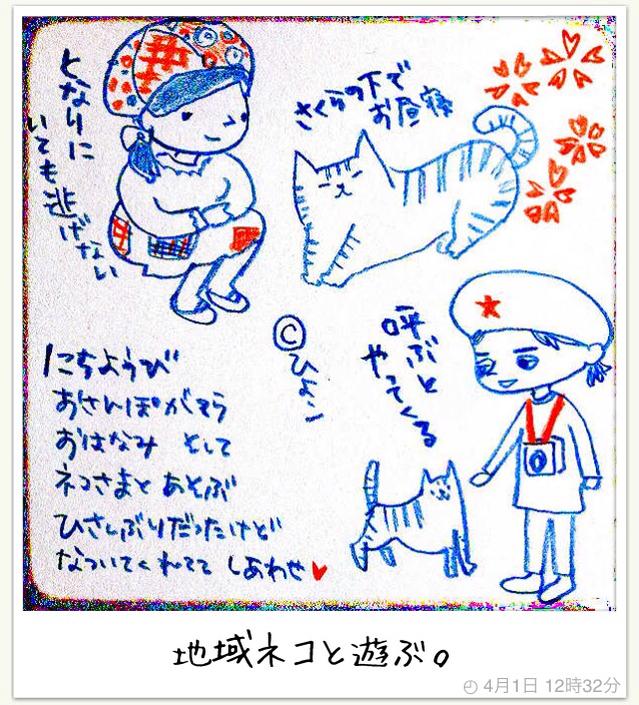 となりに
いても逃げない
さくらの下で
お昼寝
©ひよこ
呼ぶと
やってくる
にちようび
おさんぽがてら
おはなみ そして
ネコさまとあそぶ
ひさしぶりだったけど
なついてくれてて しあわせ♥
地域ネコと遊ぶ。
4月1日 12時32分